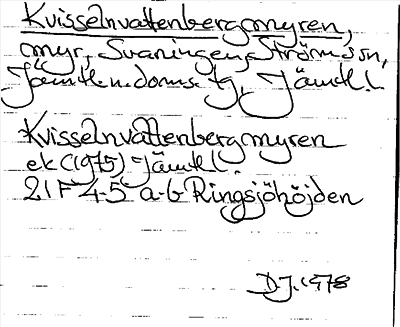 Kvisselnvattenbergmyren,
myr, Svaningen, Ströms sn,
Jämtl. n. doms. tg, Jämtl.
Kvisselnvattenbergmyren
ek (1975) Jämtl.
21F 4-5 a-b Ringsjöhöjden
D.J. 1978